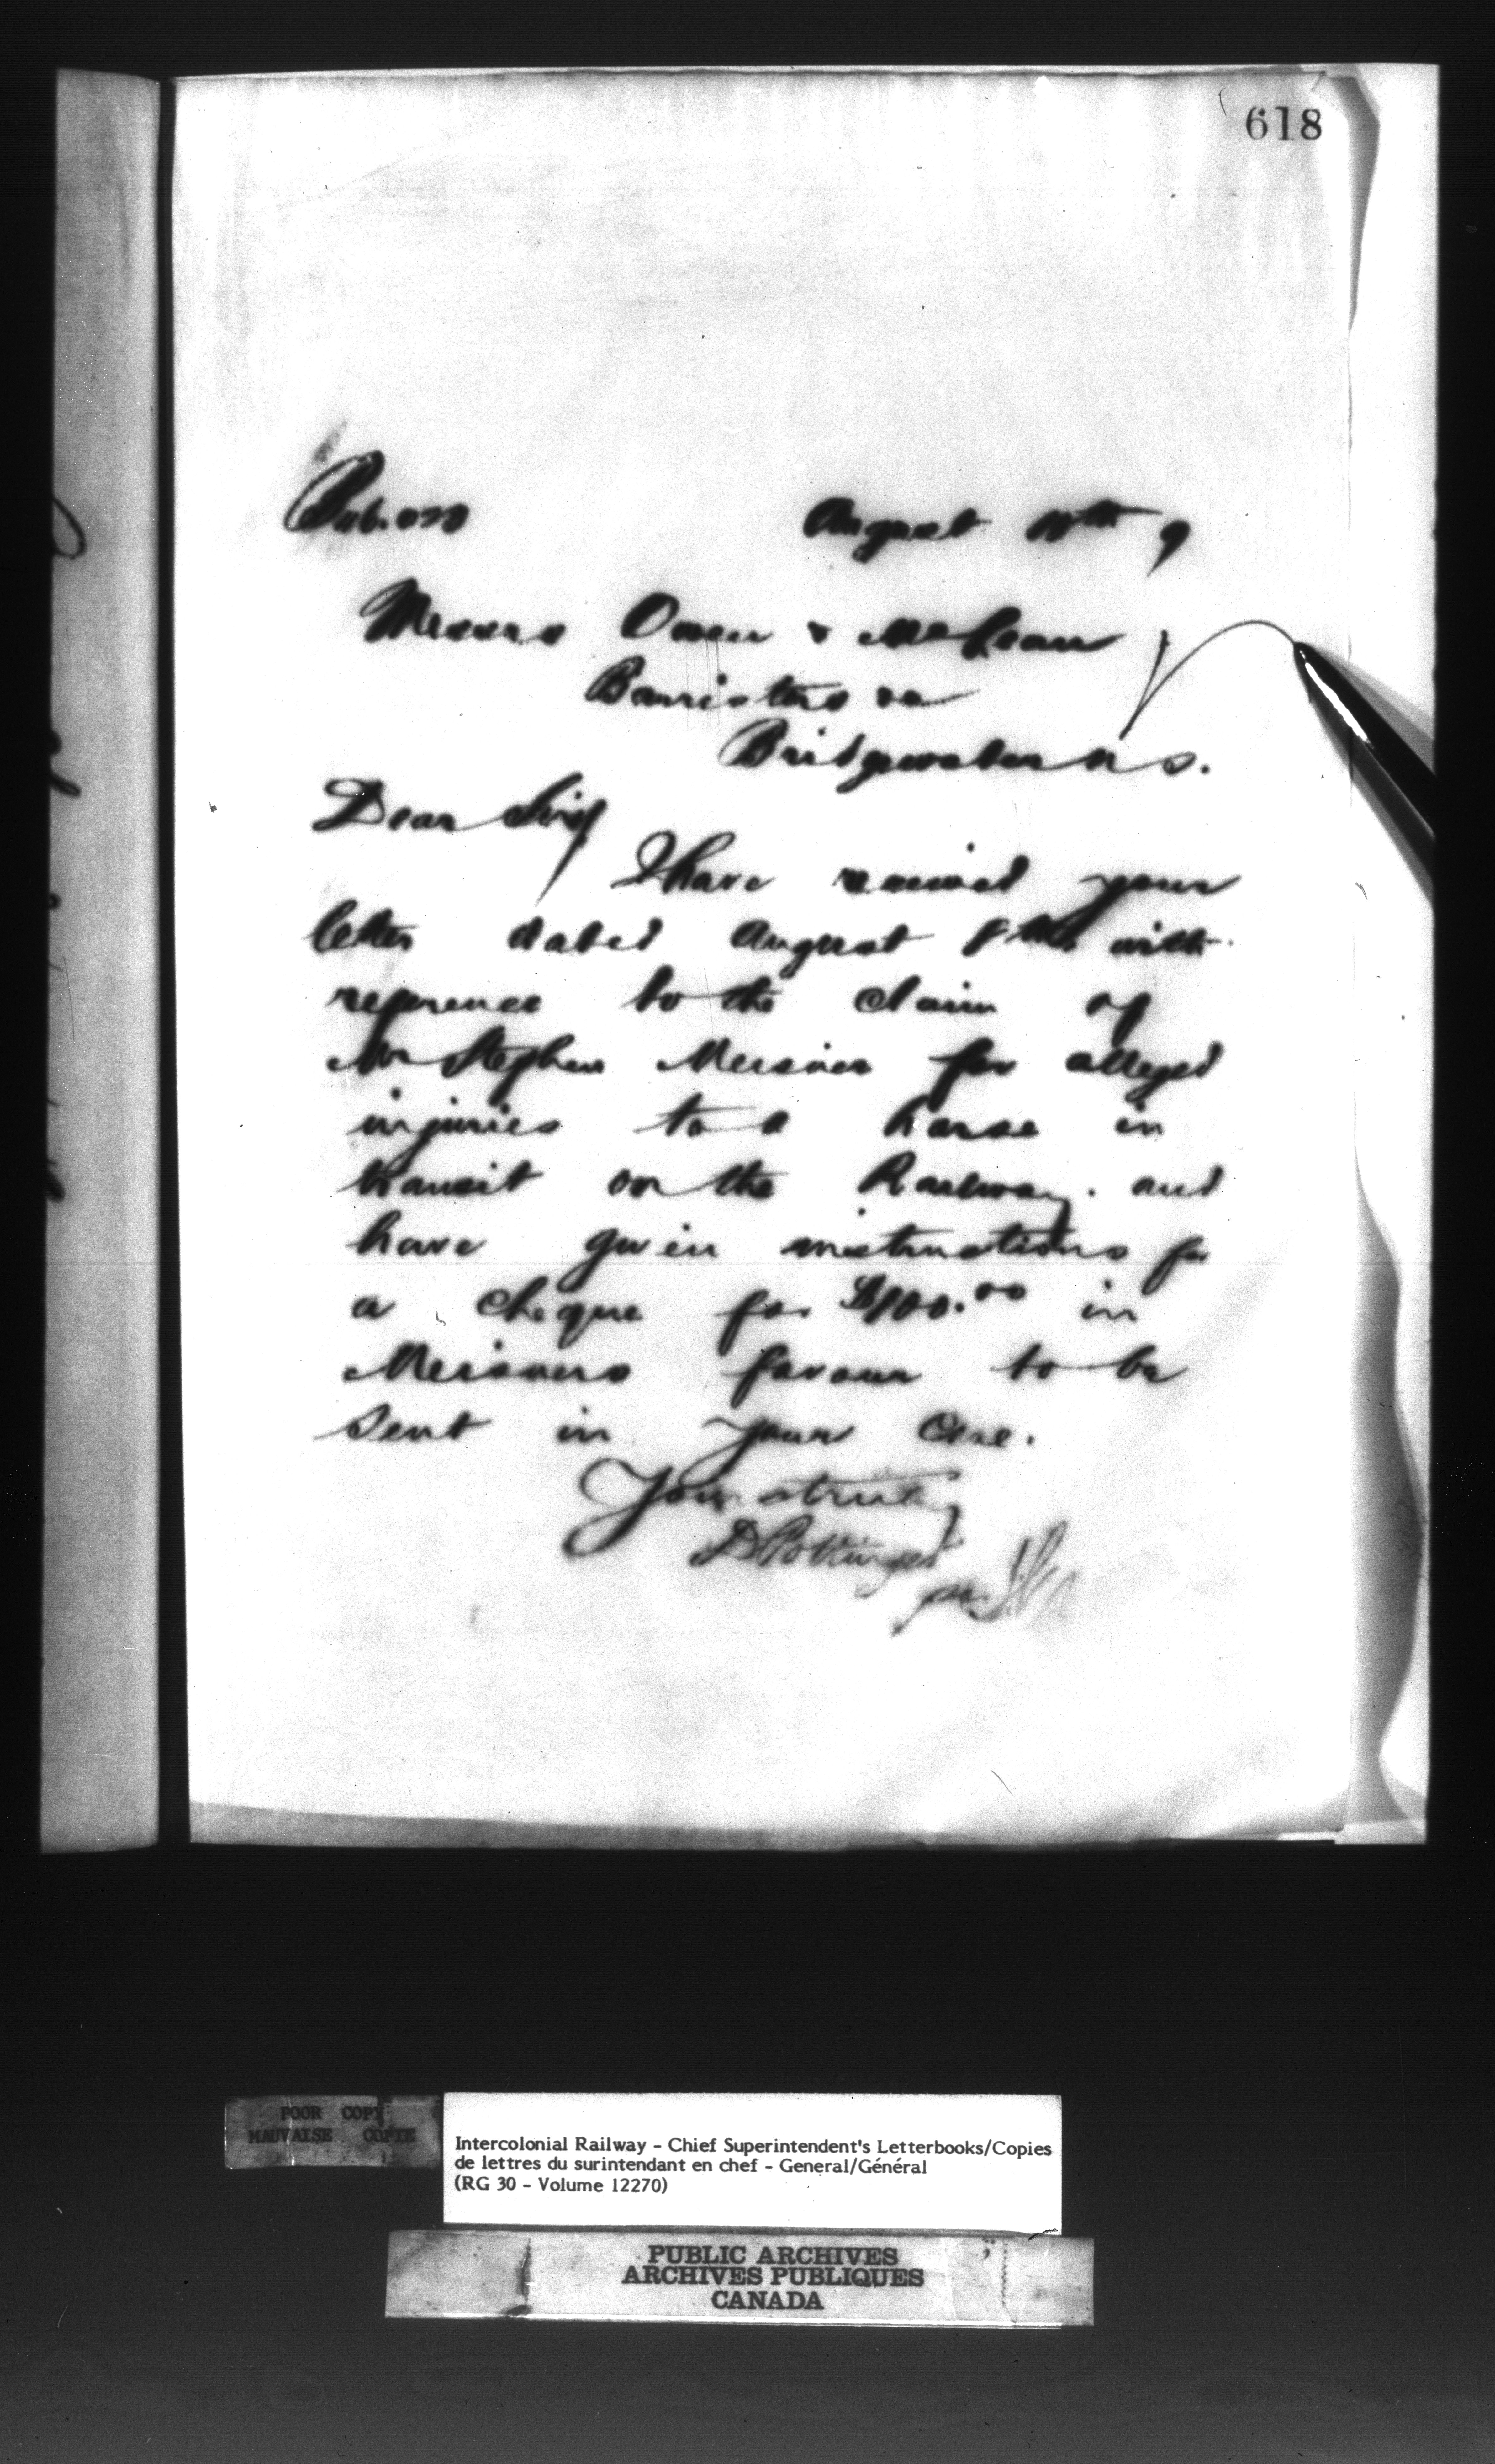 618
August 10th 9
Messrs Owen & McLean
Barristers &c
Bridgewater N S.
Dear Sirs
I have received your
letter dated August 8th with
reference to the claim of
Mr Stephen Meisner for alleged
injuries to a horse in
transit on the Railway. and
have given instructions for
a cheque for $100.00 in
Meisners favour to be
sent in your care.
Yours truly
D Pottinger
per
POOR COPY
MAUVAISE COPIE
Intercolonial Railway - Chief Superintendent's Letterbooks/Copies
de lettres du surintendant en chef - General/Général
(RG 30 - Volume 12270)
PUBLIC ARCHIVES
ARCHIVES PUBLIQUES
CANADA